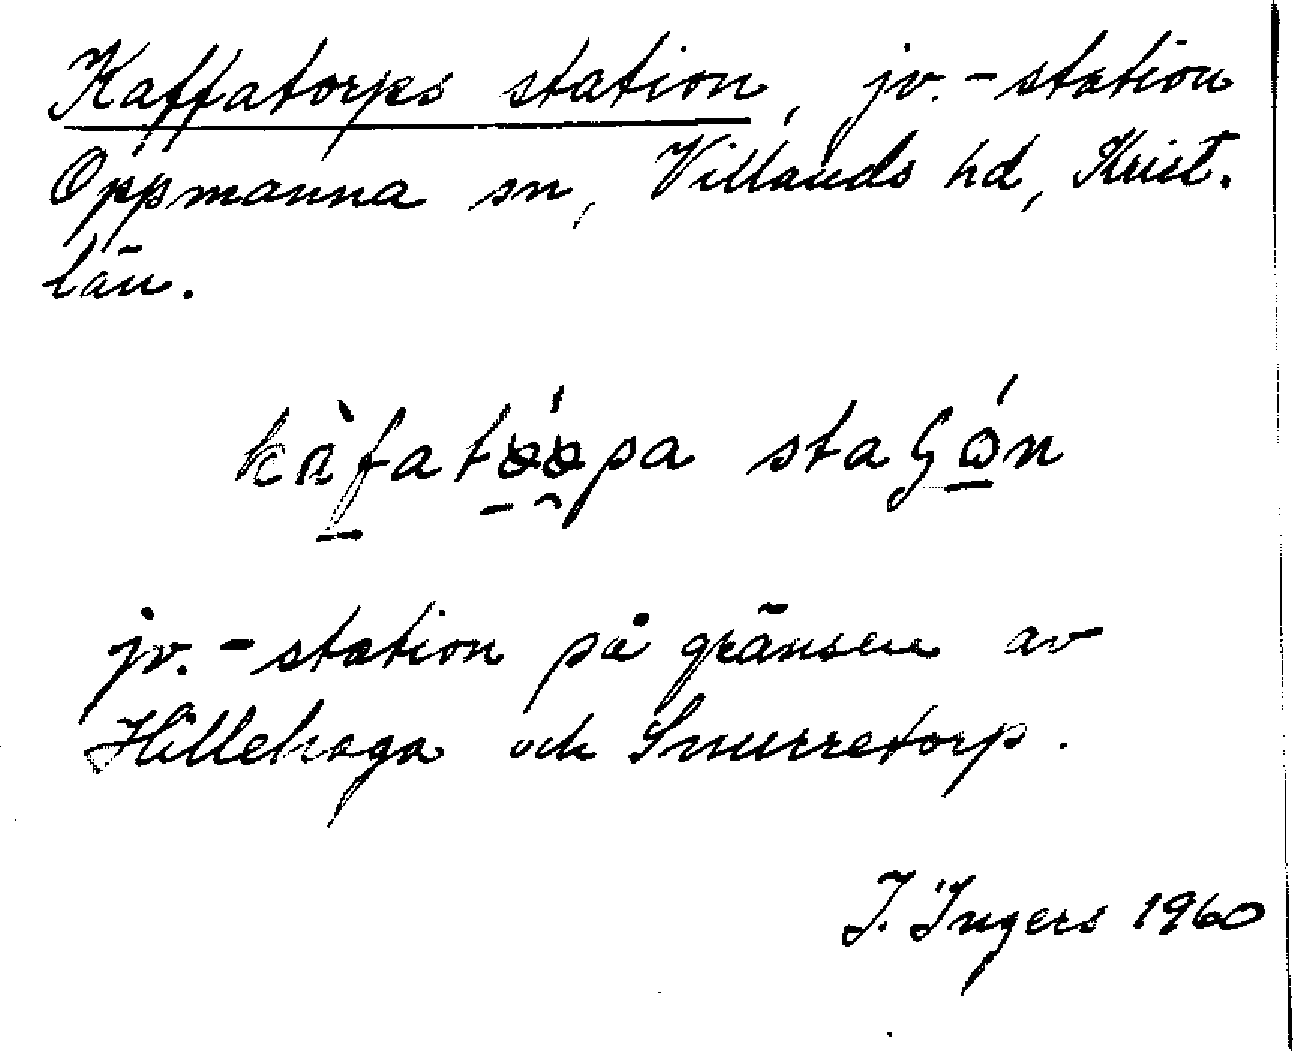 Kaffatorps station, jv.-station
Oppmanna sn, Villands hd, Krist.
län.
jv.-station på gränsen av
Hillehaga och Snurretorp.
I. Ingers 1960